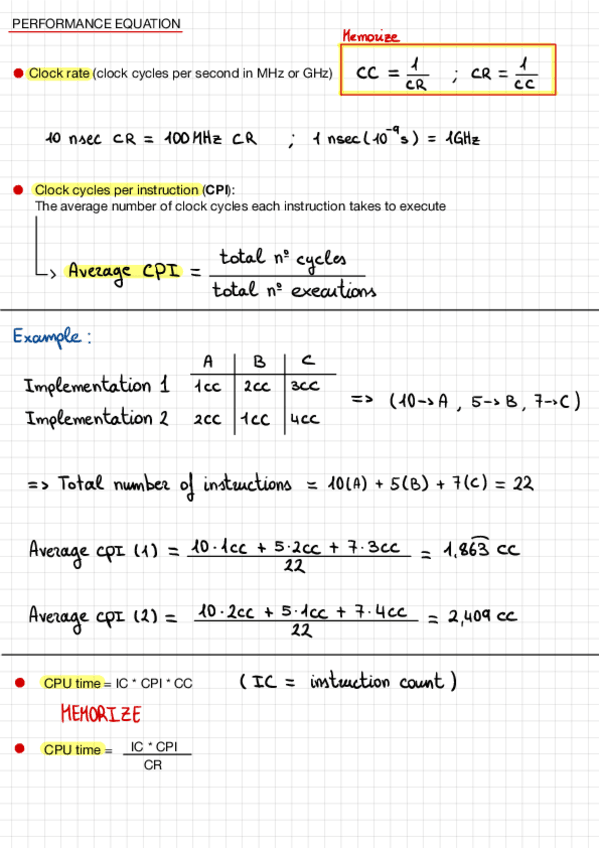 PERFORMANCE EQUATION
Memorize
Clock rate (clock cycles per second in MHz or GHz)
CC = 1/CR ; CR = 1/CC
10 nsec CR = 100 MHz CR ; 1 nsec (10⁻⁹s) = 1GHz
Clock cycles per instruction (CPI):
The average number of clock cycles each instruction takes to execute
Average CPI = total nº cycles / total nº executions
Example:
A B C
Implementation 1 1cc 2cc 3cc
Implementation 2 2cc 1cc 4cc
=> (10->A, 5->B, 7->C)
=> Total number of instructions = 10(A) + 5(B) + 7(C) = 22
Average CPI (1) = 10·1cc + 5·2cc + 7·3cc / 22 = 1,86̅3̅ cc
Average CPI (2) = 10·2cc + 5·1cc + 7·4cc / 22 = 2,409 cc
CPU time = IC * CPI * CC (IC = instruction count)
MEMORIZE
CPU time = IC * CPI / CR